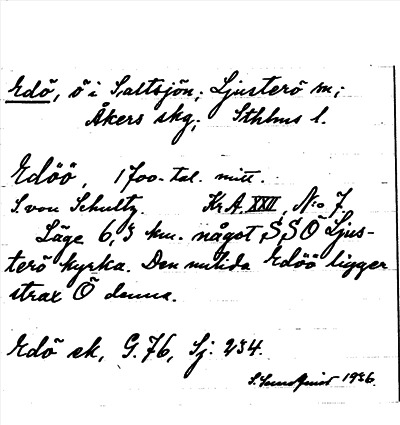 Edö, ö i Saltsjön; Ljusterö sn;
Åkers skg; Sthlms l.
Edöö, 1700-tal. mitt.
S. von Schultz. Kr A. XXII, No 7,
Läge 6,3 km. något SSÖ Ljus-
terö kyrka. Den nutida Edöö ligger
strax Ö denna.
Edö ek, G. 76, Sj: 234.
S. 1936.